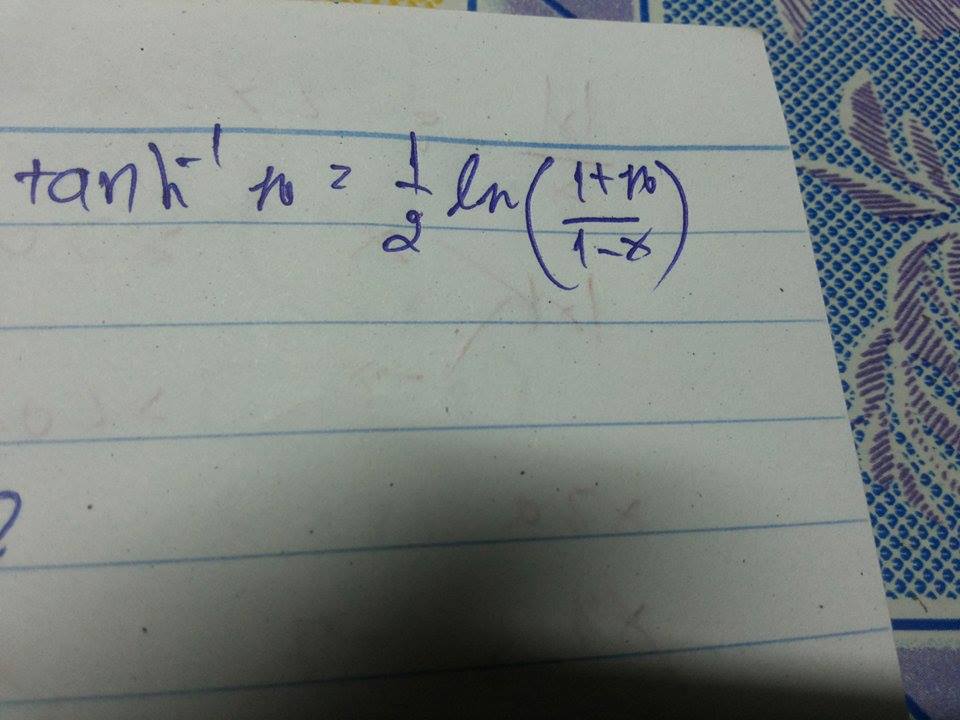 tanh⁻¹ x = 1/2 ln((1+x)/(1-x))
?